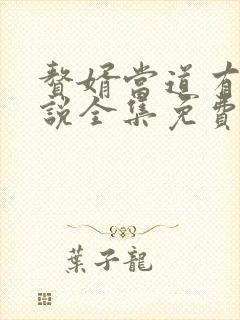 贅婿當道有
說全集免費
葉子龍